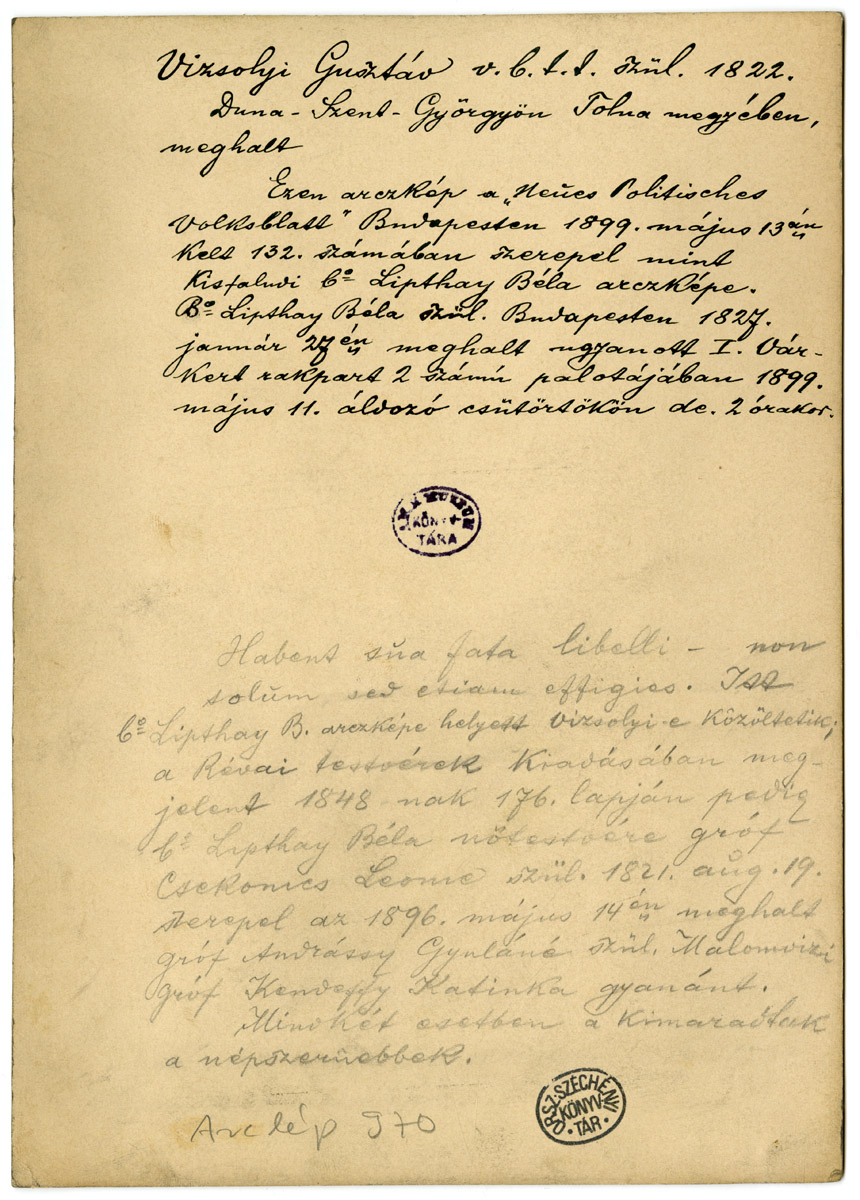 Vizsolyi Gusztáv v. b. t. t. szül. 1822.
Duna-Szent-Györgyön Tolna megyében,
meghalt
Ezen arczkép a „Neues Politisches
Volksblatt" Budapesten 1899. május 13án
kelt 132. számában szerepel mint
Kisfaludi bo Lipthay Béla arczképe.
Bo Lipthay Béla szül. Budapesten 1827.
január 27én meghalt ugyanott I. Vár-
kert rakpart 2 számú palotájában 1899.
május 11. áldozó csütörtökön de. 2 órakor.
MUZEUM
KÖNYV
TÁRA
Habent sua fata libelli – non
solum sed etiam effigies. Itt
bo Lipthay B. arczképe helyett Vizsolyi-e közöltetik;
a Révai testvérek kiadásában meg-
jelent 1848-nak 176. lapján pedig
bo Lipthay Béla nőtestvére gróf
Csekonics Leonie szül. 1821. aug. 19.
szerepel az 1896. május 14én meghalt
gróf Andrássy Gyuláné szül. Malomvizi
gróf Kendeffy Katinka gyanánt.
Mindkét esetben a kimaradtak
a népszerűebbek.
ORSZ. SZÉCHÉNYI
KÖNYV
TÁR
Arckép 970